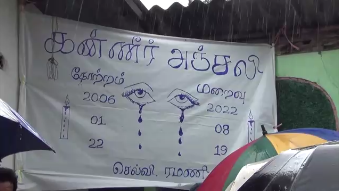 கண்ணீர் அஞ்சலி
தோற்றம் மறைவு
2006 2022
01 08
22 19
செல்வி. ரமணி